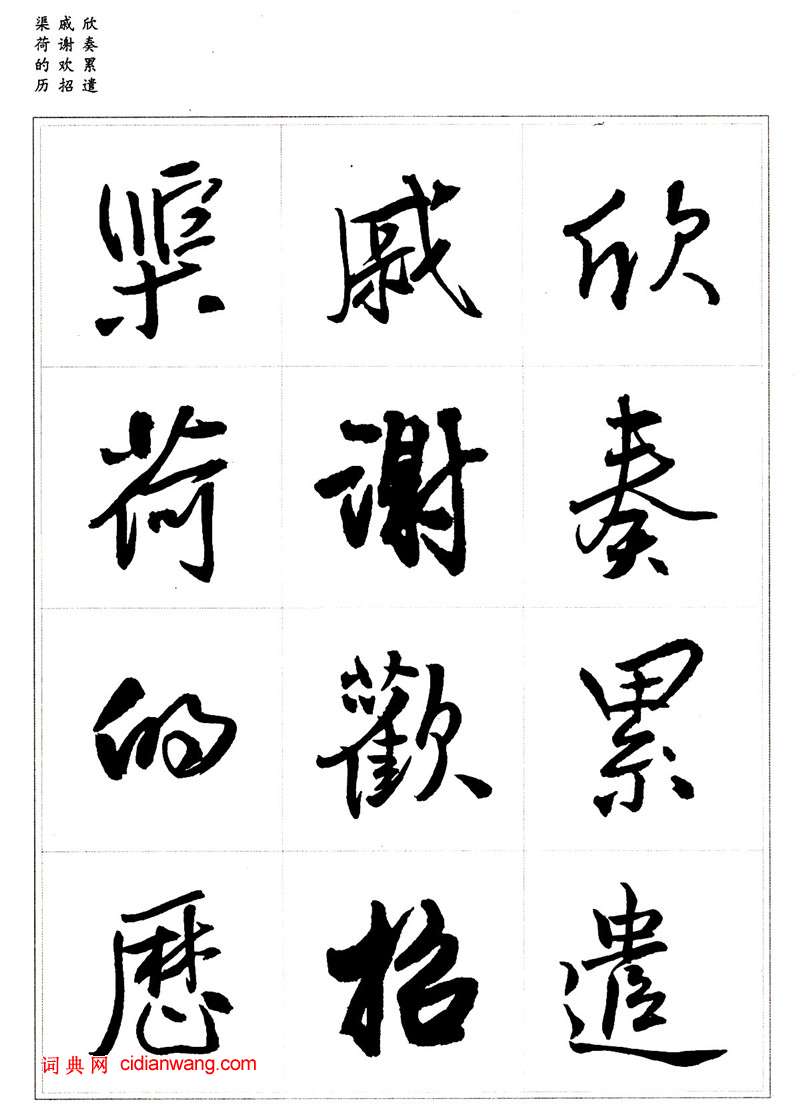 欣奏累遣
戚谢欢招
渠荷的历
欣奏累遣
戚谢歡招
渠荷的歷
词典网 cidianwang.com